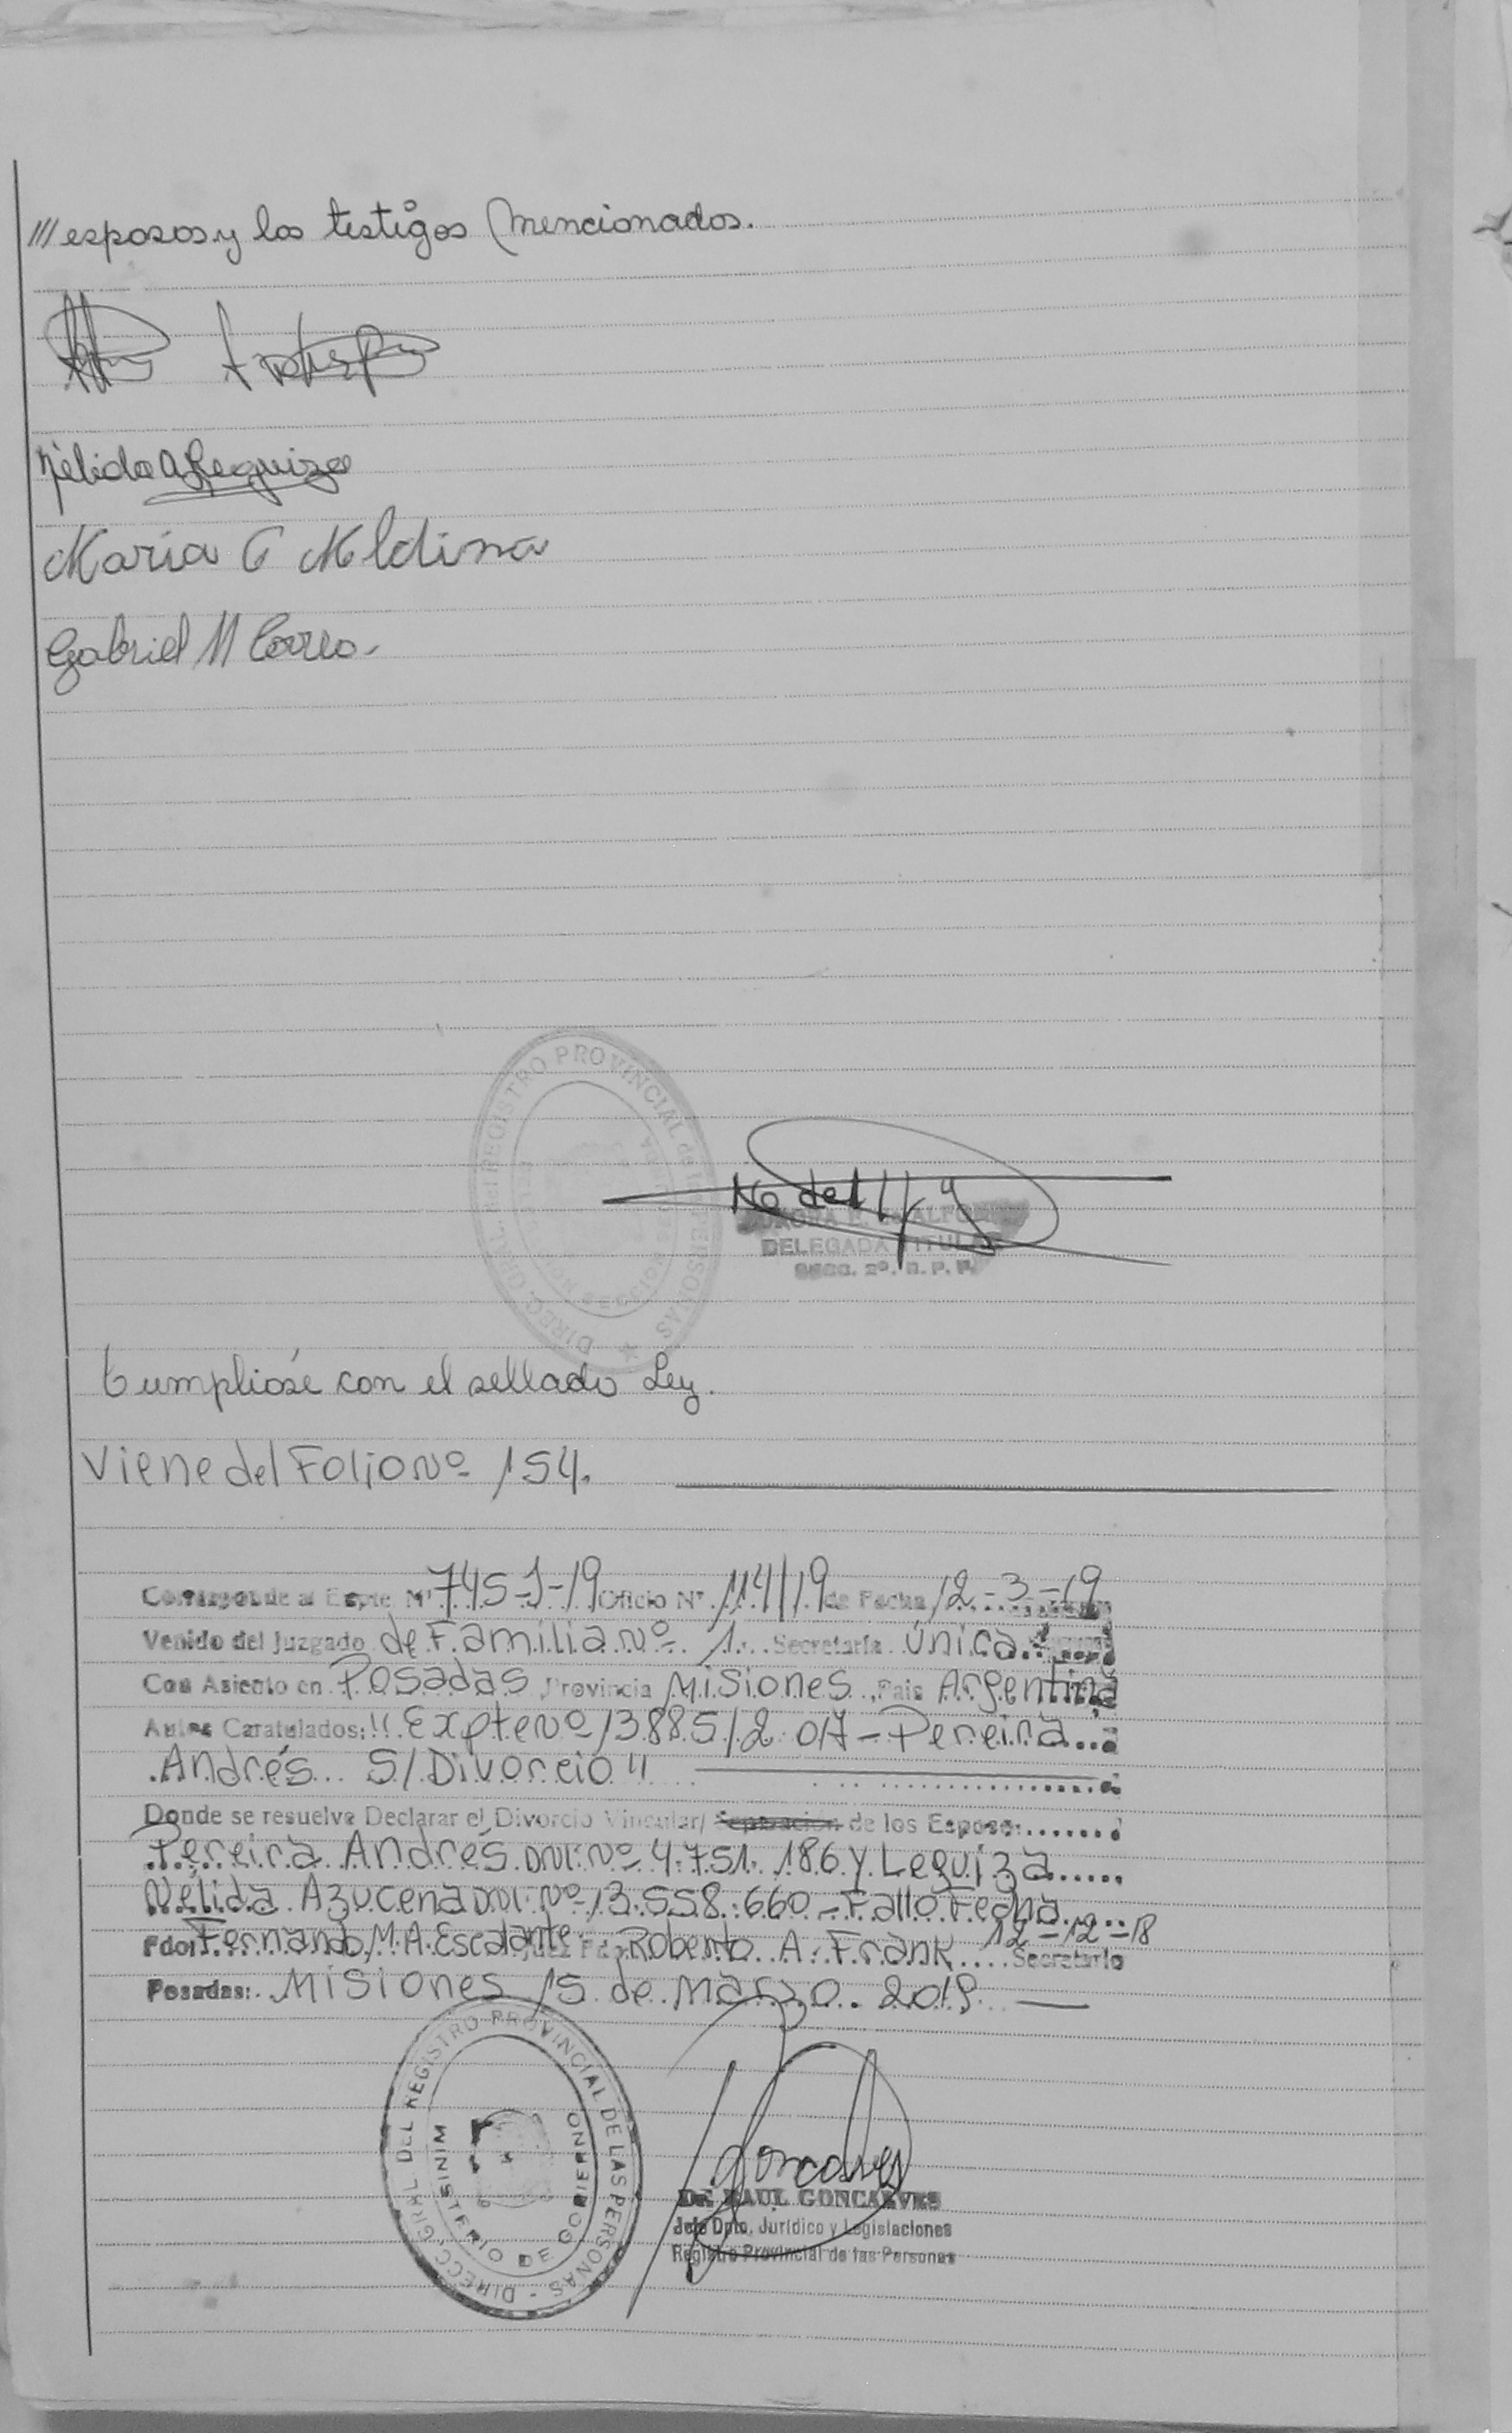 /// esposos y los testigos mencionados.
Nélida A Leguiza
María C Meldina
Gabriel M Correa.
DIREC. GRAL. del REGISTRO PROVINCIAL de las PERSONAS
SECCION
DELEGADA TITULAR
SECC. 2º. R. P. P.
Cumpliose con el sellado Ley.
Viene del Folio Nº 154.
Corresponde al Expte. Nº 745-J-19 Oficio Nº 114/19 de Fecha 12-3-19
Venido del Juzgado de Familia Nº 1. Secretaría única.
Con Asiento en Posadas Provincia Misiones País Argentina
Autos Caratulados: "Expte Nº 13885/2017 - Pereira
Andrés S/Divorcio"
Donde se resuelve Declarar el Divorcio Vincular/ Separacion de los Esposo:
Pereira Andrés DNI Nº 4.751.186 y Leguiza
Nélida Azucena DNI Nº 13.558.660 - Fallo Fecha
12-12-18
Fdo: Fernando M.A. Escalante Juez Fdo. Roberto A. Frank Secretario
Posadas: Misiones 15 de marzo 2019
DIRECC. GRAL. DEL REGISTRO PROVINCIAL DE LAS PERSONAS
MINISTERIO DE GOBIERNO
Goncalves
DE RAUL GONCALVES
Jefe Dpto. Jurídico y Legislaciones
Registro Provincial de las Personas